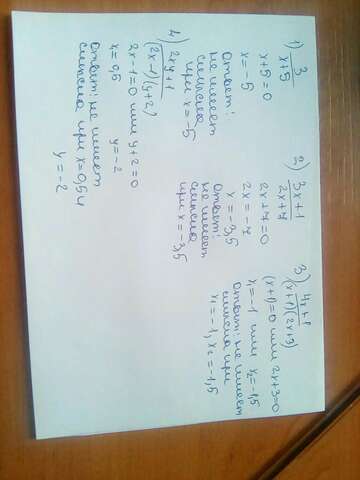 1) 3
x+5
x+5=0
x=-5
Ответ:
не имеет
смысла
при x=-5
2) 3x+1
2x+7
2x+7=0
2x=-7
x=-3,5
Ответ:
не имеет
смысла
при x=-3,5
3) 4x+1
(x+1)(2x+3)
(x+1)=0 или 2x+3=0
x₁=-1 или x₂=-1,5
Ответ: не имеет
смысла при
x₁=-1, x₂=-1,5
4) 2xy+1
(2x-1)(y+2)
2x-1=0 или y+2=0
x=0,5 y=-2
Ответ: не имеет
смысла при x=0,5 и
y=-2